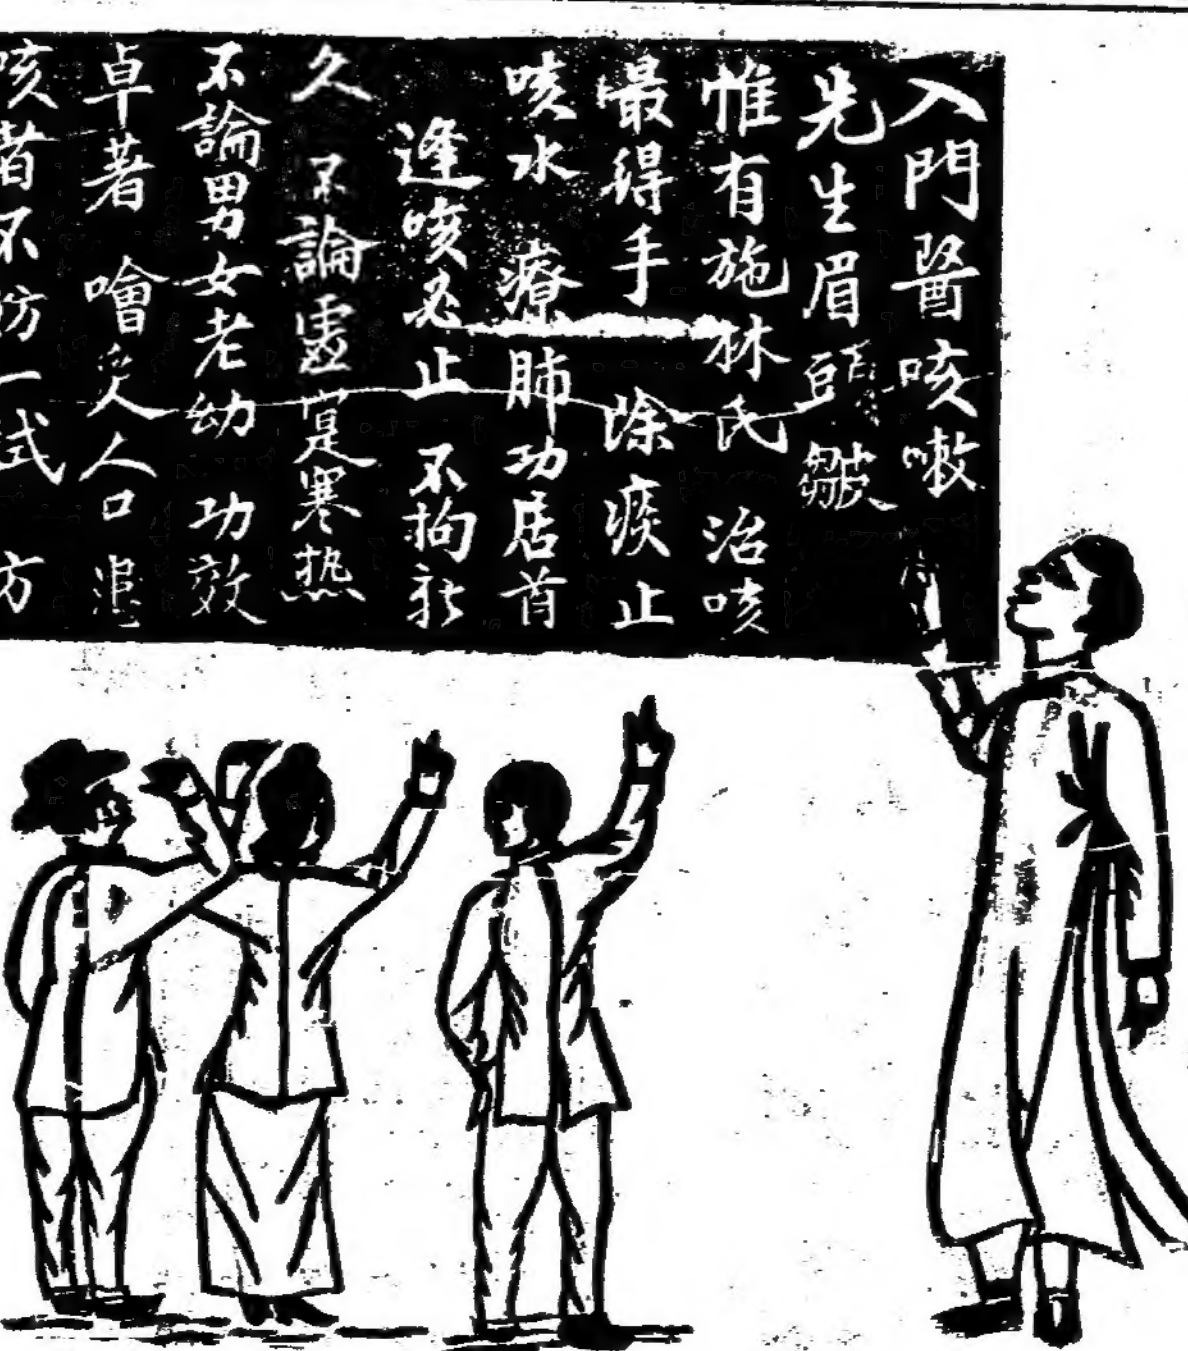 入門醫咳嗽
先生眉頭皺
惟有施林氏 治咳
最得手 除痰止
咳水 療肺功居首
逢咳必止 不拘新
久 不論虛寔寒热
不論男女老幼 功效
卓著 噲炙人口 患
咳者不妨一試 方